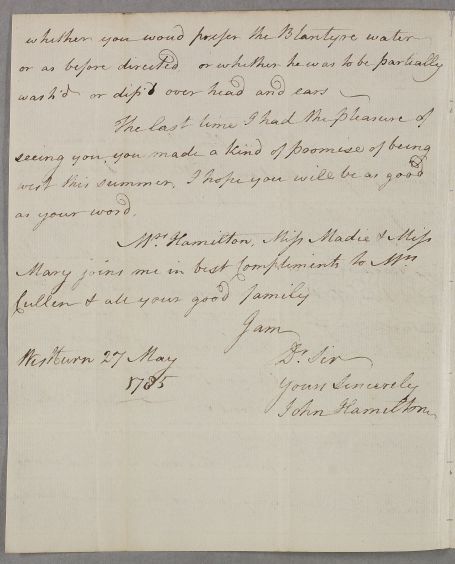 whether you woud prefer the Blantyre water
or as before directed or whether he was to be partially
wash'd or dip'd over head and ears
The last time I had the pleasure of
seeing you, you made a kind of promise of being
west this summer, I hope you will be as good
as your word.
Mrs Hamilton, Miss Madie & Miss
Mary joins me in best Compliments to Mrs
Cullen & all your good family
I am
Westburn 27 May
1785
Dr Sir
Yours Sincerely
John Hamilton